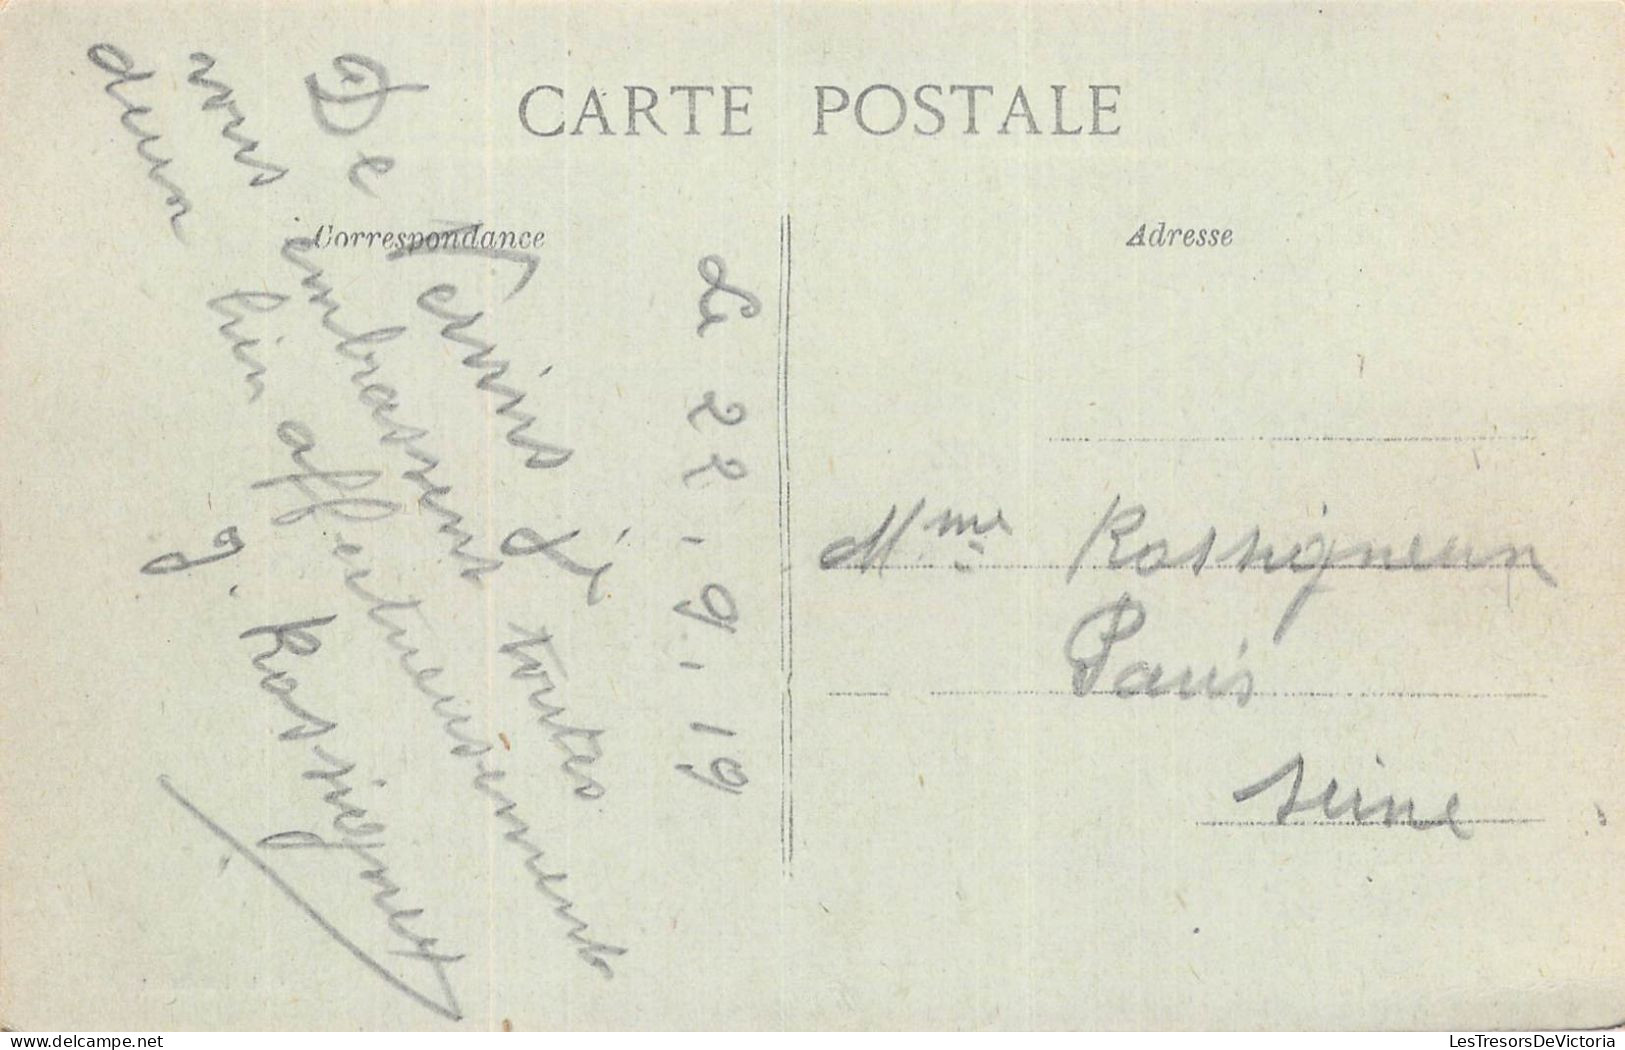 CARTE POSTALE
Correspondance
Adresse
Le 22.9.19
De Je
vous embrassent toutes
deux bien affectueusement
g. Rossigneux
Mme Rossigneux
Paris
Seine
LesTresorsDeVictoria.com